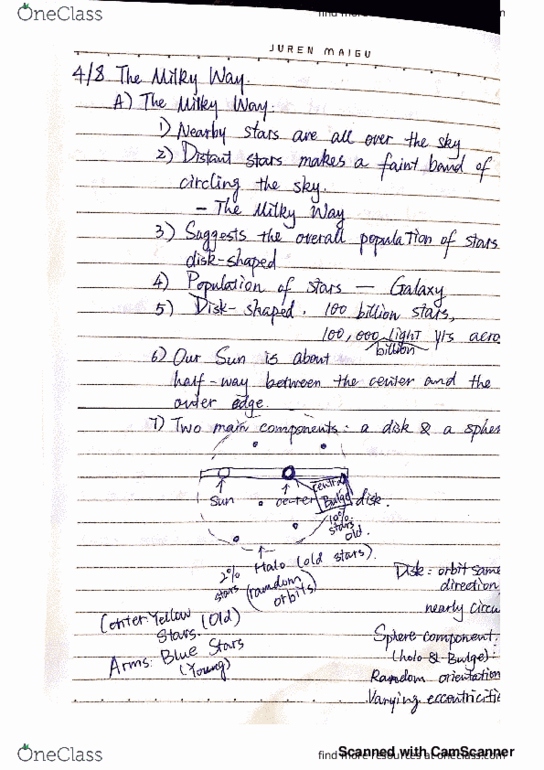 OneClass
find mo
JUREN MAIGU
4/8 The Milky Way.
A) The Milky Way.
1) Nearby stars are all over the sky
2) Distant stars makes a faint band of
circling the sky.
- The Milky Way
3) Suggests the overall population of stars
disk-shaped
4) Population of stars — Galaxy
5) Disk-shaped. 100 billion stars,
100,000 light yrs acro
billion
6) Our Sun is about
half-way between the center and the
outer edge.
7) Two main components: a disk & a spher
Sun
center
central
Bulge
disk.
10%
stars
old.
Halo (old stars).
2%
stars
(ramdom
orbits)
Center: Yellow
Stars. (Old)
Arms: Blue Stars
(Young)
Disk: orbit same
direction
nearly circu
Sphere component:
(halo & Bulge):
Random orientation
Varying eccentricitie
OneClass
find more resources at oneclass.com
Scanned with CamScanner